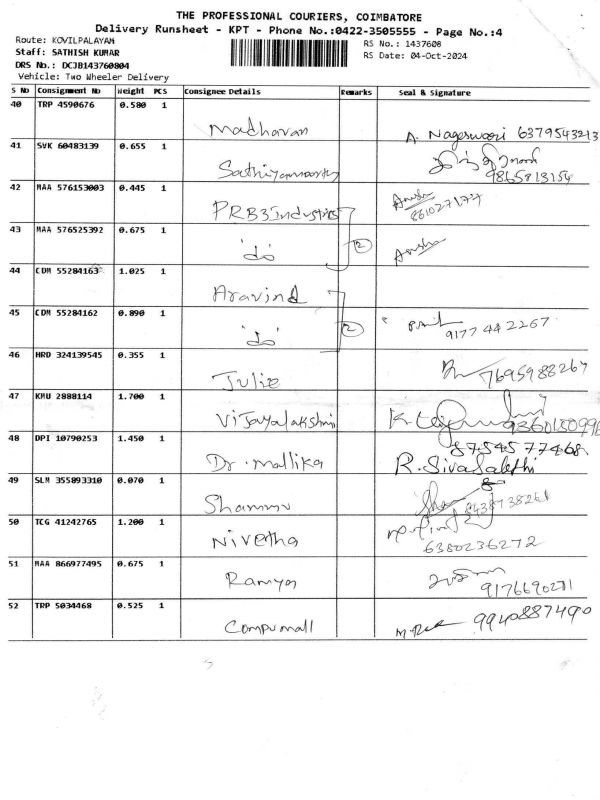 THE PROFESSIONAL COURIERS, COIMBATORE
Delivery Runsheet - KPT - Phone No.:0422-3505555 - Page No.:4
Route: KOVILPALAYAM
RS No.: 1437608
Staff: SATHISH KUMAR
RS Date: 04-Oct-2024
DRS No.: DCJB143760804
Vehicle: Two Wheeler Delivery
S No Consignment No Weight PCS Consignee Details Remarks Seal & Signature
40 TRP 4590676 0.580 1
Madhavan A. Nageswari 6379543213
41 SVK 60483139 0.655 1
Sathiyamoorthy 9865813154
42 MAA 576153003 0.445 1
PRB3 Industries
43 MAA 576525392 0.675 1
"do" 2
44 CDM 55284163 1.025 1
Aravind
45 CDM 55284162 0.890 1
"do" 2 9177442267
46 HRD 324139545 0.355 1
Julie 7695988267
47 KMU 2888114 1.700 1
Vijayalakshmi 9360150996
48 DPI 10790253 1.450 1 8754577468
Dr. Mallika R. Sivasakthi
49 SLM 355893310 0.070 1
Shammu
50 TCG 41242765 1.200 1
Nivetha 6380236272
51 MAA 866977495 0.675 1
Ramya 9176690271
52 TRP 5034468 0.525 1
Compumall 9940887490